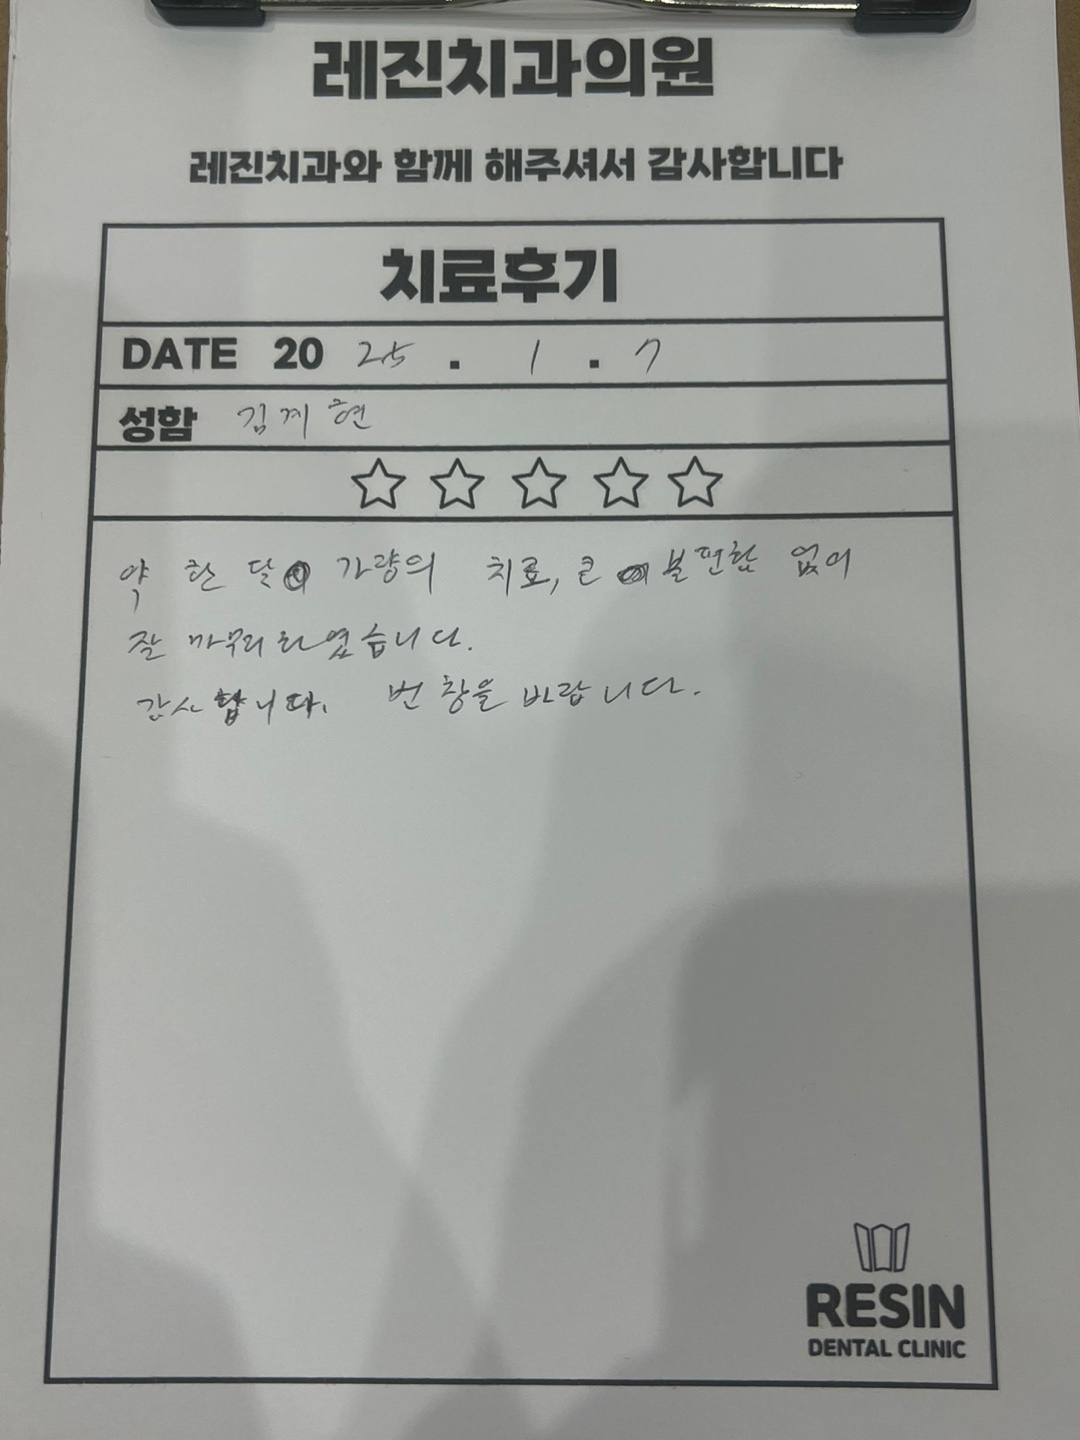 레진치과의원
레진치과와 함께 해주셔서 감사합니다
치료후기
DATE 20 25 . 1 . 7
성함 김계현
☆☆☆☆☆
약 한 달 가량의 치료, 큰 불편함 없이
잘 마무리 되었습니다.
감사합니다. 번창을 바랍니다.
RESIN
DENTAL CLINIC